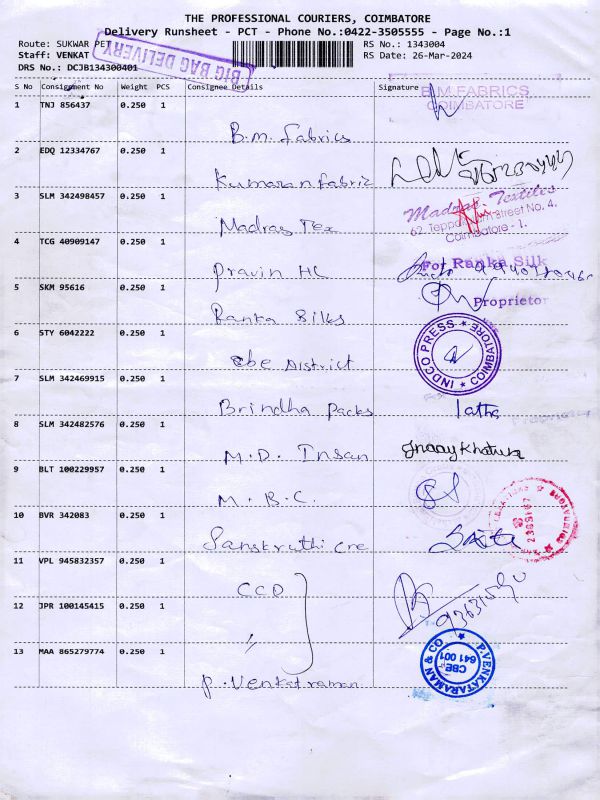 THE PROFESSIONAL COURIERS, COIMBATORE
Delivery Runsheet - PCT - Phone No.:0422-3505555 - Page No.:1
Route: SUKWAR PET
RS No.: 1343004
Staff: VENKAT
RS Date: 26-Mar-2024
DRS No.: DCJB134300401
BIG BAG DELIVERY
S No Consignment No Weight PCS Consignee Details Signature
1 TNJ 856437 0.250 1 B.M. Fabrics
B.M.FABRICS
COIMBATORE
2 EDQ 12334767 0.250 1 Kumaran Fabriz
3 SLM 342498457 0.250 1 Madras Tex
Madras Textiles
Street No. 4,
Coimbatore - 1.
4 TCG 40909147 0.250 1 Pravin HC
For Ranka Silk
5 SKM 95616 0.250 1 Ranka Silks
Proprietor
6 STY 6042222 0.250 1 cbe District
INDCO PRESS ★ COIMBATORE ★
7 SLM 342469915 0.250 1 Brindha Packs latha
8 SLM 342482576 0.250 1 M.D. Insan
9 BLT 100229957 0.250 1 M.B.C.
10 BVR 342083 0.250 1 Sanskruthi Cre
11 VPL 945832357 0.250 1 CCD
12 JPR 100145415 0.250 1 "
13 MAA 865279774 0.250 1 P. Venkatraman
P.VENKATARAMAN & CO ★
CBE
641 001